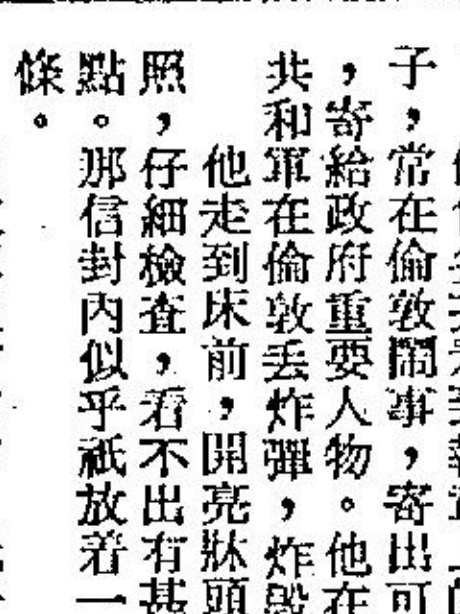 子，常在倫敦鬧事，寄出可
，寄給政府重要人物。他在
共和軍在倫敦丢炸彈，炸毀
他走到床前，開亮牀頭
照，仔細檢查，看不出有甚
點。那信封內似乎祇放着一
條。